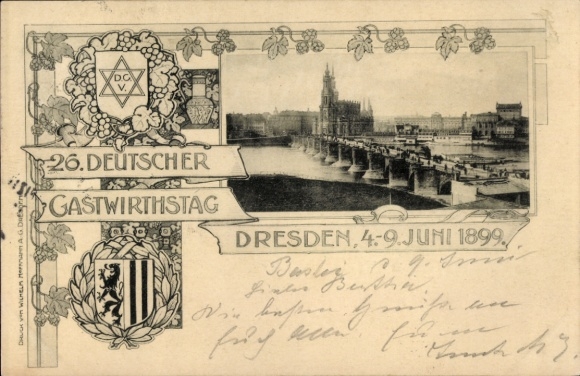 D.G.
V.
26. DEUTSCHER
GASTWIRTHSTAG
DRESDEN, 4.-9. JUNI 1899.
DRUCK VON WILHELM HOFFMANN A.G. DRESDEN
d 9 Juni
Bertha
Die besten Grüße an
Euch